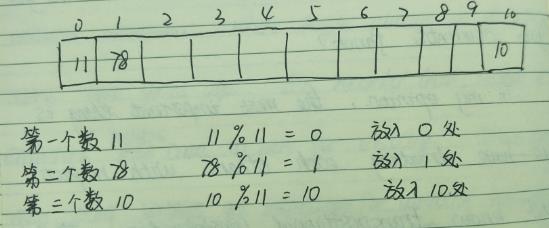 0 1 2 3 4 5 6 7 8 9 10
11 78 10
第一个数 11 11 % 11 = 0 放入 0 处
第二个数 78 78 % 11 = 1 放入 1 处
第三个数 10 10 % 11 = 10 放入 10 处